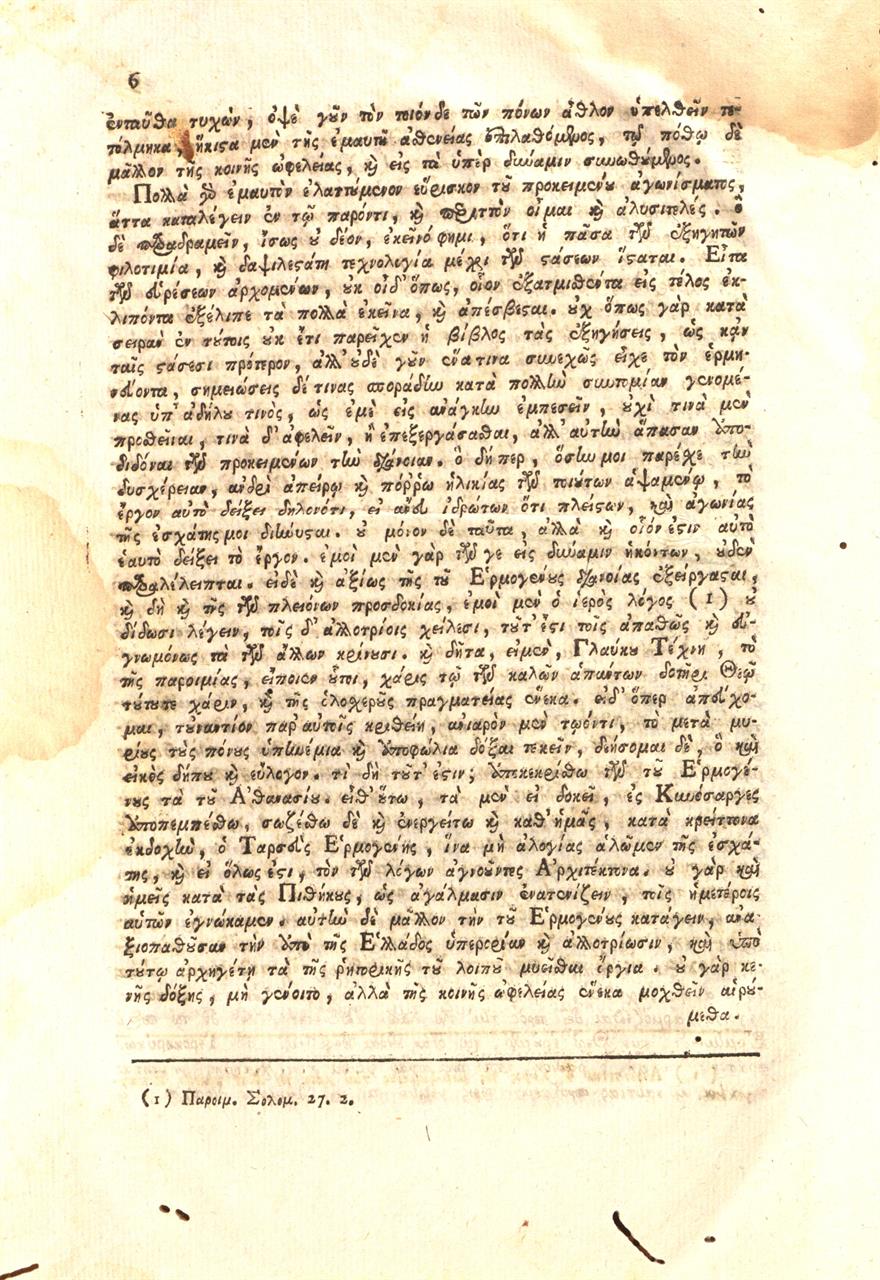 6
ἐνταῦθα τυχὼν, ὀψὲ γοῦν τὸν τοιόνδε τῶν πόνων ἆθλον ὑπελθεῖν τε-
τόλμηκα, ἥκιστα μὲν τῆς ἐμαυτοῦ ἀσθενείας ἐπιλαθόμενος, τῷ πόθῳ δὲ
μᾶλλον τῆς κοινῆς ὠφελείας, καὶ εἰς τὰ ὑπὲρ δύναμιν συνωθούμενος.
Πολλὰ γὰρ ἐμαυτὸν ἐλαττούμενον εὕρισκον τοῦ προκειμένου ἀγωνίσματος,
ἅττα καταλέγειν ἐν τῷ παρόντι, καὶ περιττὸν οἶμαι καὶ ἀλυσιτελές. ὃ
δὲ παραδραμεῖν, ἴσως οὐ δέον, ἐκεῖνό φημι, ὅτι ἡ πᾶσα τῶν ἐξηγητῶν
φιλοτιμία, καὶ δαψιλεστάτη τεχνολογία μέχρι τῶν στάσεων ἵσταται. Εἶτα
τῶν εὑρέσεων ἀρχομένων, οὐκ οἶδ' ὅπως, οἷον ἐξατμισθέντα εἰς τέλος ἐκ-
λιπόντα ἐξέλιπε τὰ πολλὰ ἐκεῖνα, καὶ ἀπέσβεσται. οὐχ ὅπως γὰρ κατὰ
σειρὰν ἐν τούτοις οὐκ ἔτι παρεῖχεν ἡ βίβλος τὰς ἐξηγήσεις, ὡς κἀν
ταῖς στάσεσι πρότερον, ἀλλ' οὐδὲ γοῦν ἕνα τινα συνεχῶς εἶχε τὸν ἑρμη-
νεύοντα, σημειώσεις δέ τινας σποράδην κατὰ πολλὴν συντομίαν γενομέ-
νας ὑπ' ἀδήλου τινὸς, ὡς ἐμὲ εἰς ἀνάγκην ἐμπεσεῖν, οὐχὶ τινὰ μὲν
προσθεῖναι, τινὰ δ' ἀφελεῖν, ἢ ἐπεξεργάσασθαι, ἀλλ' αὐτὴν ἅπασαν ὑπο-
διδόναι τῶν προκειμένων τὴν διάνοιαν. ὃ δήπερ, ὅσην μοι παρέσχε τὴν
δυσχέρειαν, ἀνδρὶ ἀπείρῳ καὶ πόῤῥω ἡλικίας τῶν τοιούτων ἁψαμένῳ, τὸ
ἔργον αὐτὸ δείξει δηλονότι, εἰ ἄνευ ἱδρώτων ὅτι πλείστων, καὶ ἀγωνίας
τῆς ἐσχάτης μοι διήνυσται. οὐ μόνον δὲ ταῦτα, ἀλλὰ καὶ οἷόν ἐστιν αὐτὸ
ἑαυτὸ δείξει τὸ ἔργον. ἐμοὶ μὲν γὰρ τῶν γε εἰς δύναμιν ἡκόντων, οὐδὲν
παραλέλειπται. εἰ δὲ καὶ ἀξίως τῆς τοῦ Ἑρμογένους διανοίας ἐξείργασται,
καὶ δὴ καὶ τῆς τῶν πλειόνων προσδοκίας, ἐμοὶ μὲν ὁ ἱερὸς λόγος (1) οὐ
δίδωσι λέγειν, τοῖς δ' ἀλλοτρίοις χείλεσι, τοῦτ' ἔστι τοῖς ἀπαθῶς καὶ εὐ-
γνωμόνως τὰ τῶν ἄλλων κρίνουσι. καὶ δῆτα, εἰ μὲν, Γλαύκου Τέχνη, τὸ
τῆς παροιμίας, εἴποιεν οὗτοι, χάρις τῷ τῶν καλῶν ἁπάντων δοτῆρι Θεῷ
τούτου χάριν, καὶ τῆς ὁλοσχεροῦς πραγματείας ἕνεκα. εἰ δ' ὅπερ ἀπεύχο-
μαι, τοὐναντίον παρ' αὐτοῖς κριθείη, ἀνιαρὸν μὲν τῷόντι, τὸ μετὰ μυ-
ρίους τοὺς πόνους ὑπηνέμια καὶ ὑποφώλια δόξαι τεκεῖν, δεήσομαι δὲ, ὃ καὶ
εἰκὸς δήπου καὶ εὔλογον. τί δὴ τοῦτ' ἔστιν; ὑπεκκεκρίσθω τῶν τοῦ Ἑρμογέ-
νους τὰ τοῦ Ἀθανασίου. εἶθ' οὕτω, τὰ μὲν εἰ δοκεῖ, ἐς Κυνόσαργες
ὑποπεμπέσθω, σωζέσθω δὲ καὶ ἐνεργείτω καὶ καθ' ἡμᾶς, κατὰ κρείττονα
ἐκδοχὴν, ὁ Ταρσεὺς Ἑρμογένης, ἵνα μὴ ἀλογίας ἁλῶμεν τῆς ἐσχά-
της, καὶ εἰ ὅλως ἐστι, τὸν τῶν λόγων ἀγνοοῦντες Ἀρχιτέκτονα. οὐ γὰρ καὶ
ἡμεῖς κατὰ τὰς Πιθήκους, ὡς ἀγάλμασιν ἐνατενίζειν, τοῖς ἡμετέροις
αὐτῶν ἐγνώκαμεν. αὐτὴν δὲ μᾶλλον τὴν τοῦ Ἑρμογένους κατάγειν, ἀνα-
ξιοπαθοῦσαν τὴν ὑπὸ τῆς Ἑλλάδος ὑπερορίαν καὶ ἀλλοτρίωσιν, καὶ ὑπὸ
τούτῳ ἀρχηγέτῃ τὰ τῆς ῥητορικῆς τοῦ λοιποῦ μυεῖσθαι ὄργια. οὐ γὰρ κε-
νῆς δόξης, μὴ γένοιτο, ἀλλὰ τῆς κοινῆς ὠφελείας ἕνεκα μοχθεῖν αἱρού-
μεθα.
(1) Παροιμ. Σολομ. 27. 2.